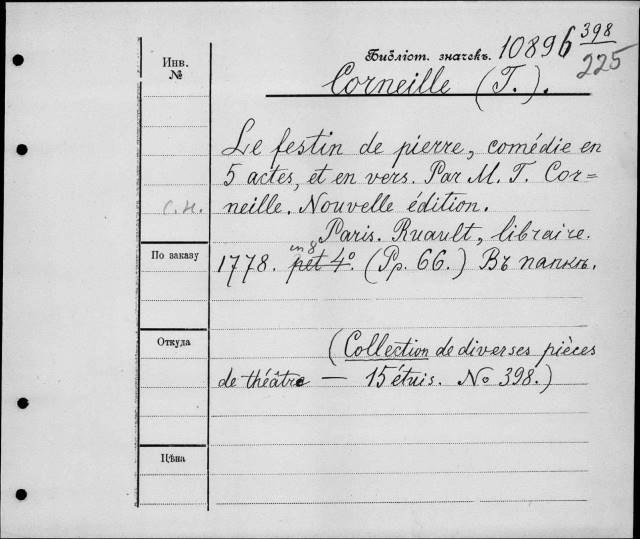 Библіот. значекъ. 10896 398
225
Инв.
№
Corneille (T.).
Le festin de pierre, comédie en
5 actes, et en vers. Par M. T. Cor=
С.Н. neille. Nouvelle édition.
Paris. Ruault, libraire.
По заказу
in 8
1778. pet 4º. (Pp. 66.) Въ папкѣ.
Откуда
(Collection de diverses pièces
de théâtre — 15 étuis. No 398.)
Цѣна